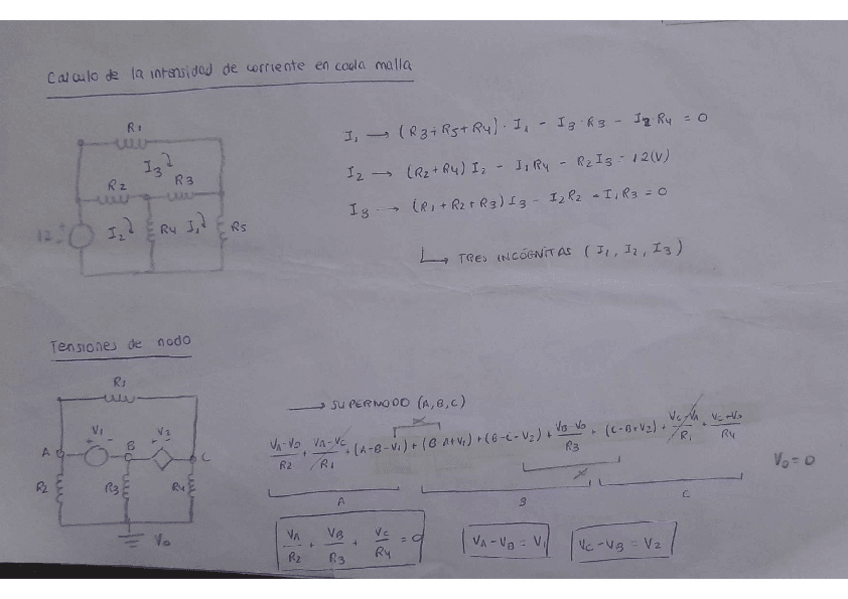 Calculo de la intensidad de corriente en cada malla
R1
I3
R2
R3
12
I2
R4
I1
R5
I1 → (R3+R5+R4)·I1 - I3·R3 - I2 R4 = 0
I2 → (R2+R4) I2 - I1R4 - R2I3 = 12(V)
I3 → (R1+R2+R3)I3 - I2R2 - I1R3 = 0
TRES INCÓGNITAS (I1, I2, I3)
Tensiones de nodo
R1
V1
V2
A
B
C
R2
R3
R4
V0
→ SUPERNODO (A,B,C)
VA-V0/R2 + VA-VC/R1 + (A-B-V1) + (B-A+V1) + (B-C-V2) + VB-V0/R3 + (C-B+V2) + VC-VA/R1 + VC-V0/R4
V0 = 0
A
B
C
VA/R2 + VB/R3 + VC/R4 = 0
VA-VB = V1
VC-VB = V2